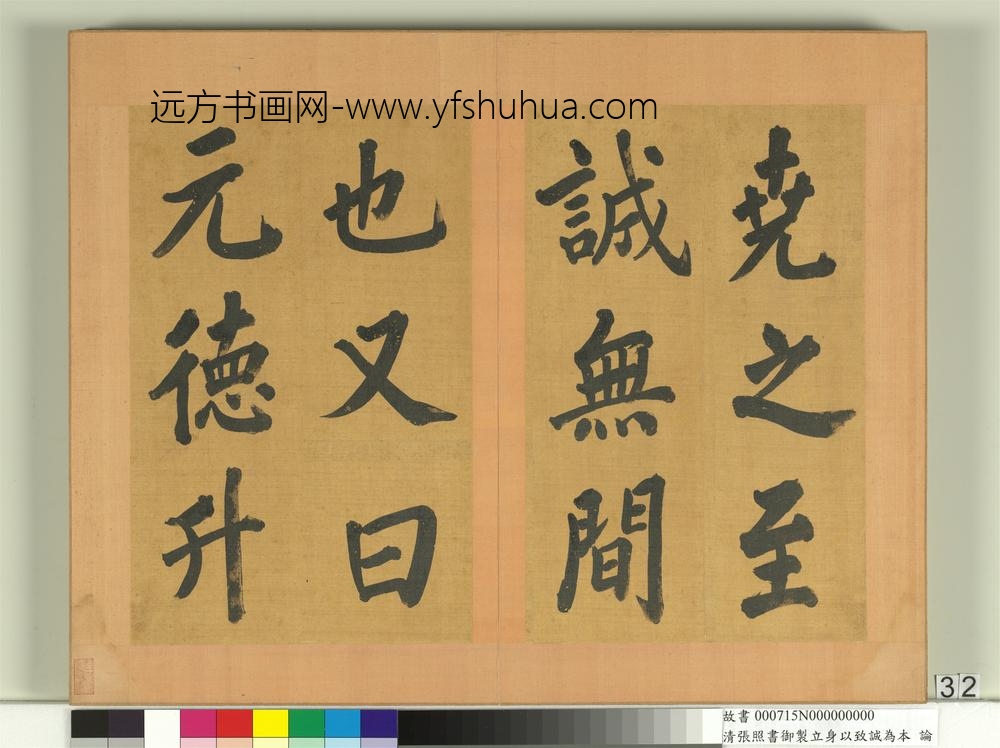 远方书画网-www.yfshuhua.com
堯之至
誠無間
也又曰
元德升
32
故書 000715N000000000
清張照書御製立身以致誠為本 論